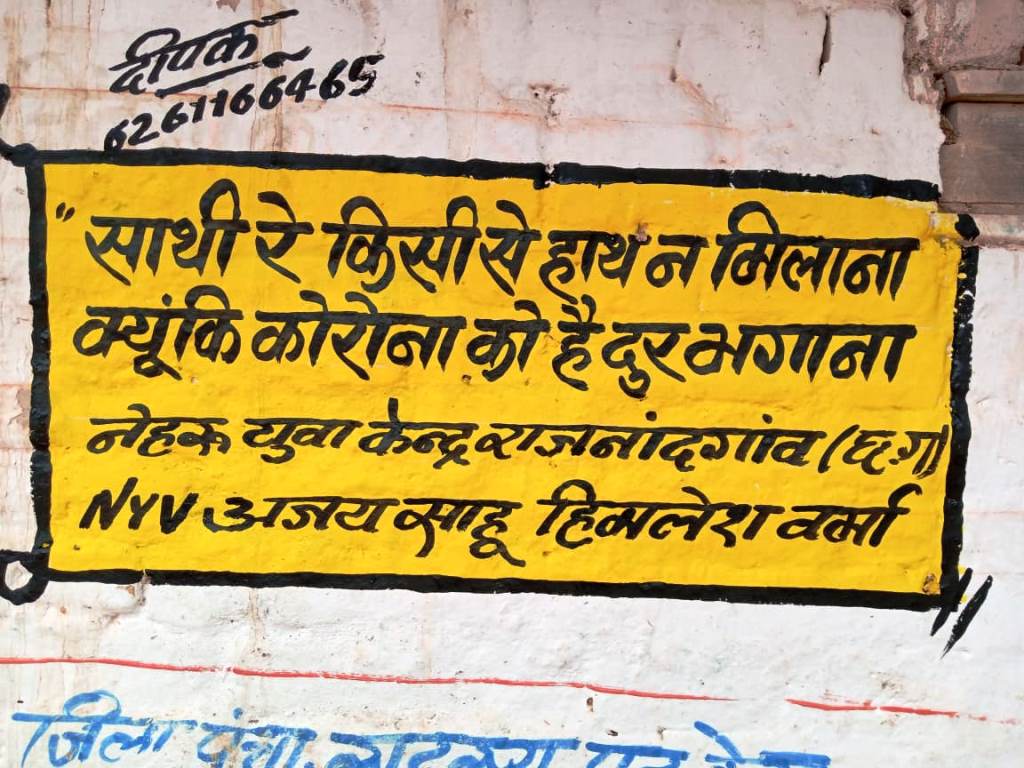 दीपक
6261166465
"साथी रे किसी से हाथ न मिलाना
क्यूंकि कोरोना को है दुर भगाना
नेहरू युवा केन्द्र राजनांदगांव (छ.ग)
NYV अजय साहू हिमलेश वर्मा
जिला पंचा.